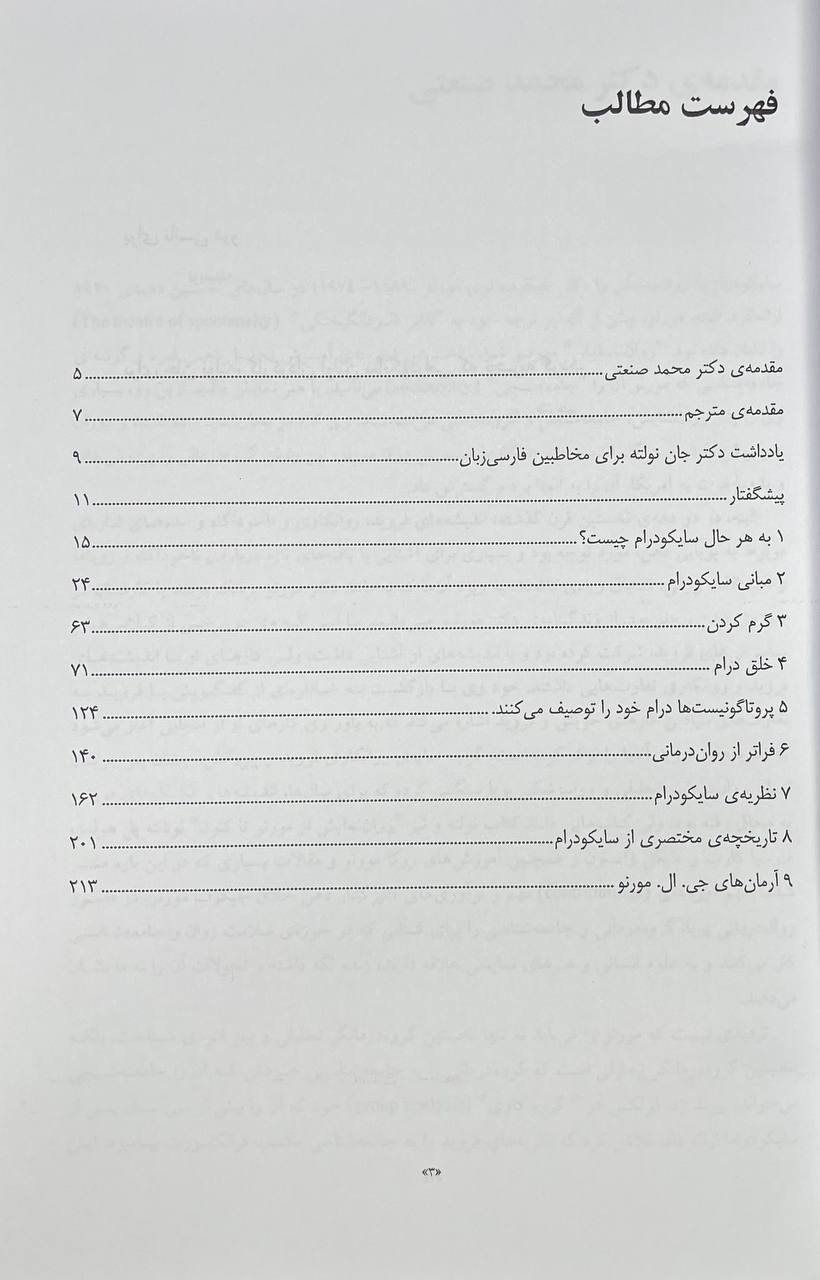 فهرست مطالب
مقدمه‌ی دکتر محمد صنعتی ۵
مقدمه‌ی مترجم ۷
یادداشت دکتر جان نولته برای مخاطبین فارسی‌زبان ۹
پیشگفتار ۱۱
۱ به هر حال سایکودرام چیست؟ ۱۵
۲ مبانی سایکودرام ۲۴
۳ گرم کردن ۶۳
۴ خلق درام ۷۱
۵ پروتاگونیست‌ها درام خود را توصیف می‌کنند. ۱۲۴
۶ فراتر از روان‌درمانی ۱۴۰
۷ نظریه‌ی سایکودرام ۱۶۲
۸ تاریخچه‌ی مختصری از سایکودرام ۲۰۱
۹ آرمان‌های جی. ال. مورنو ۲۱۳
«۳»